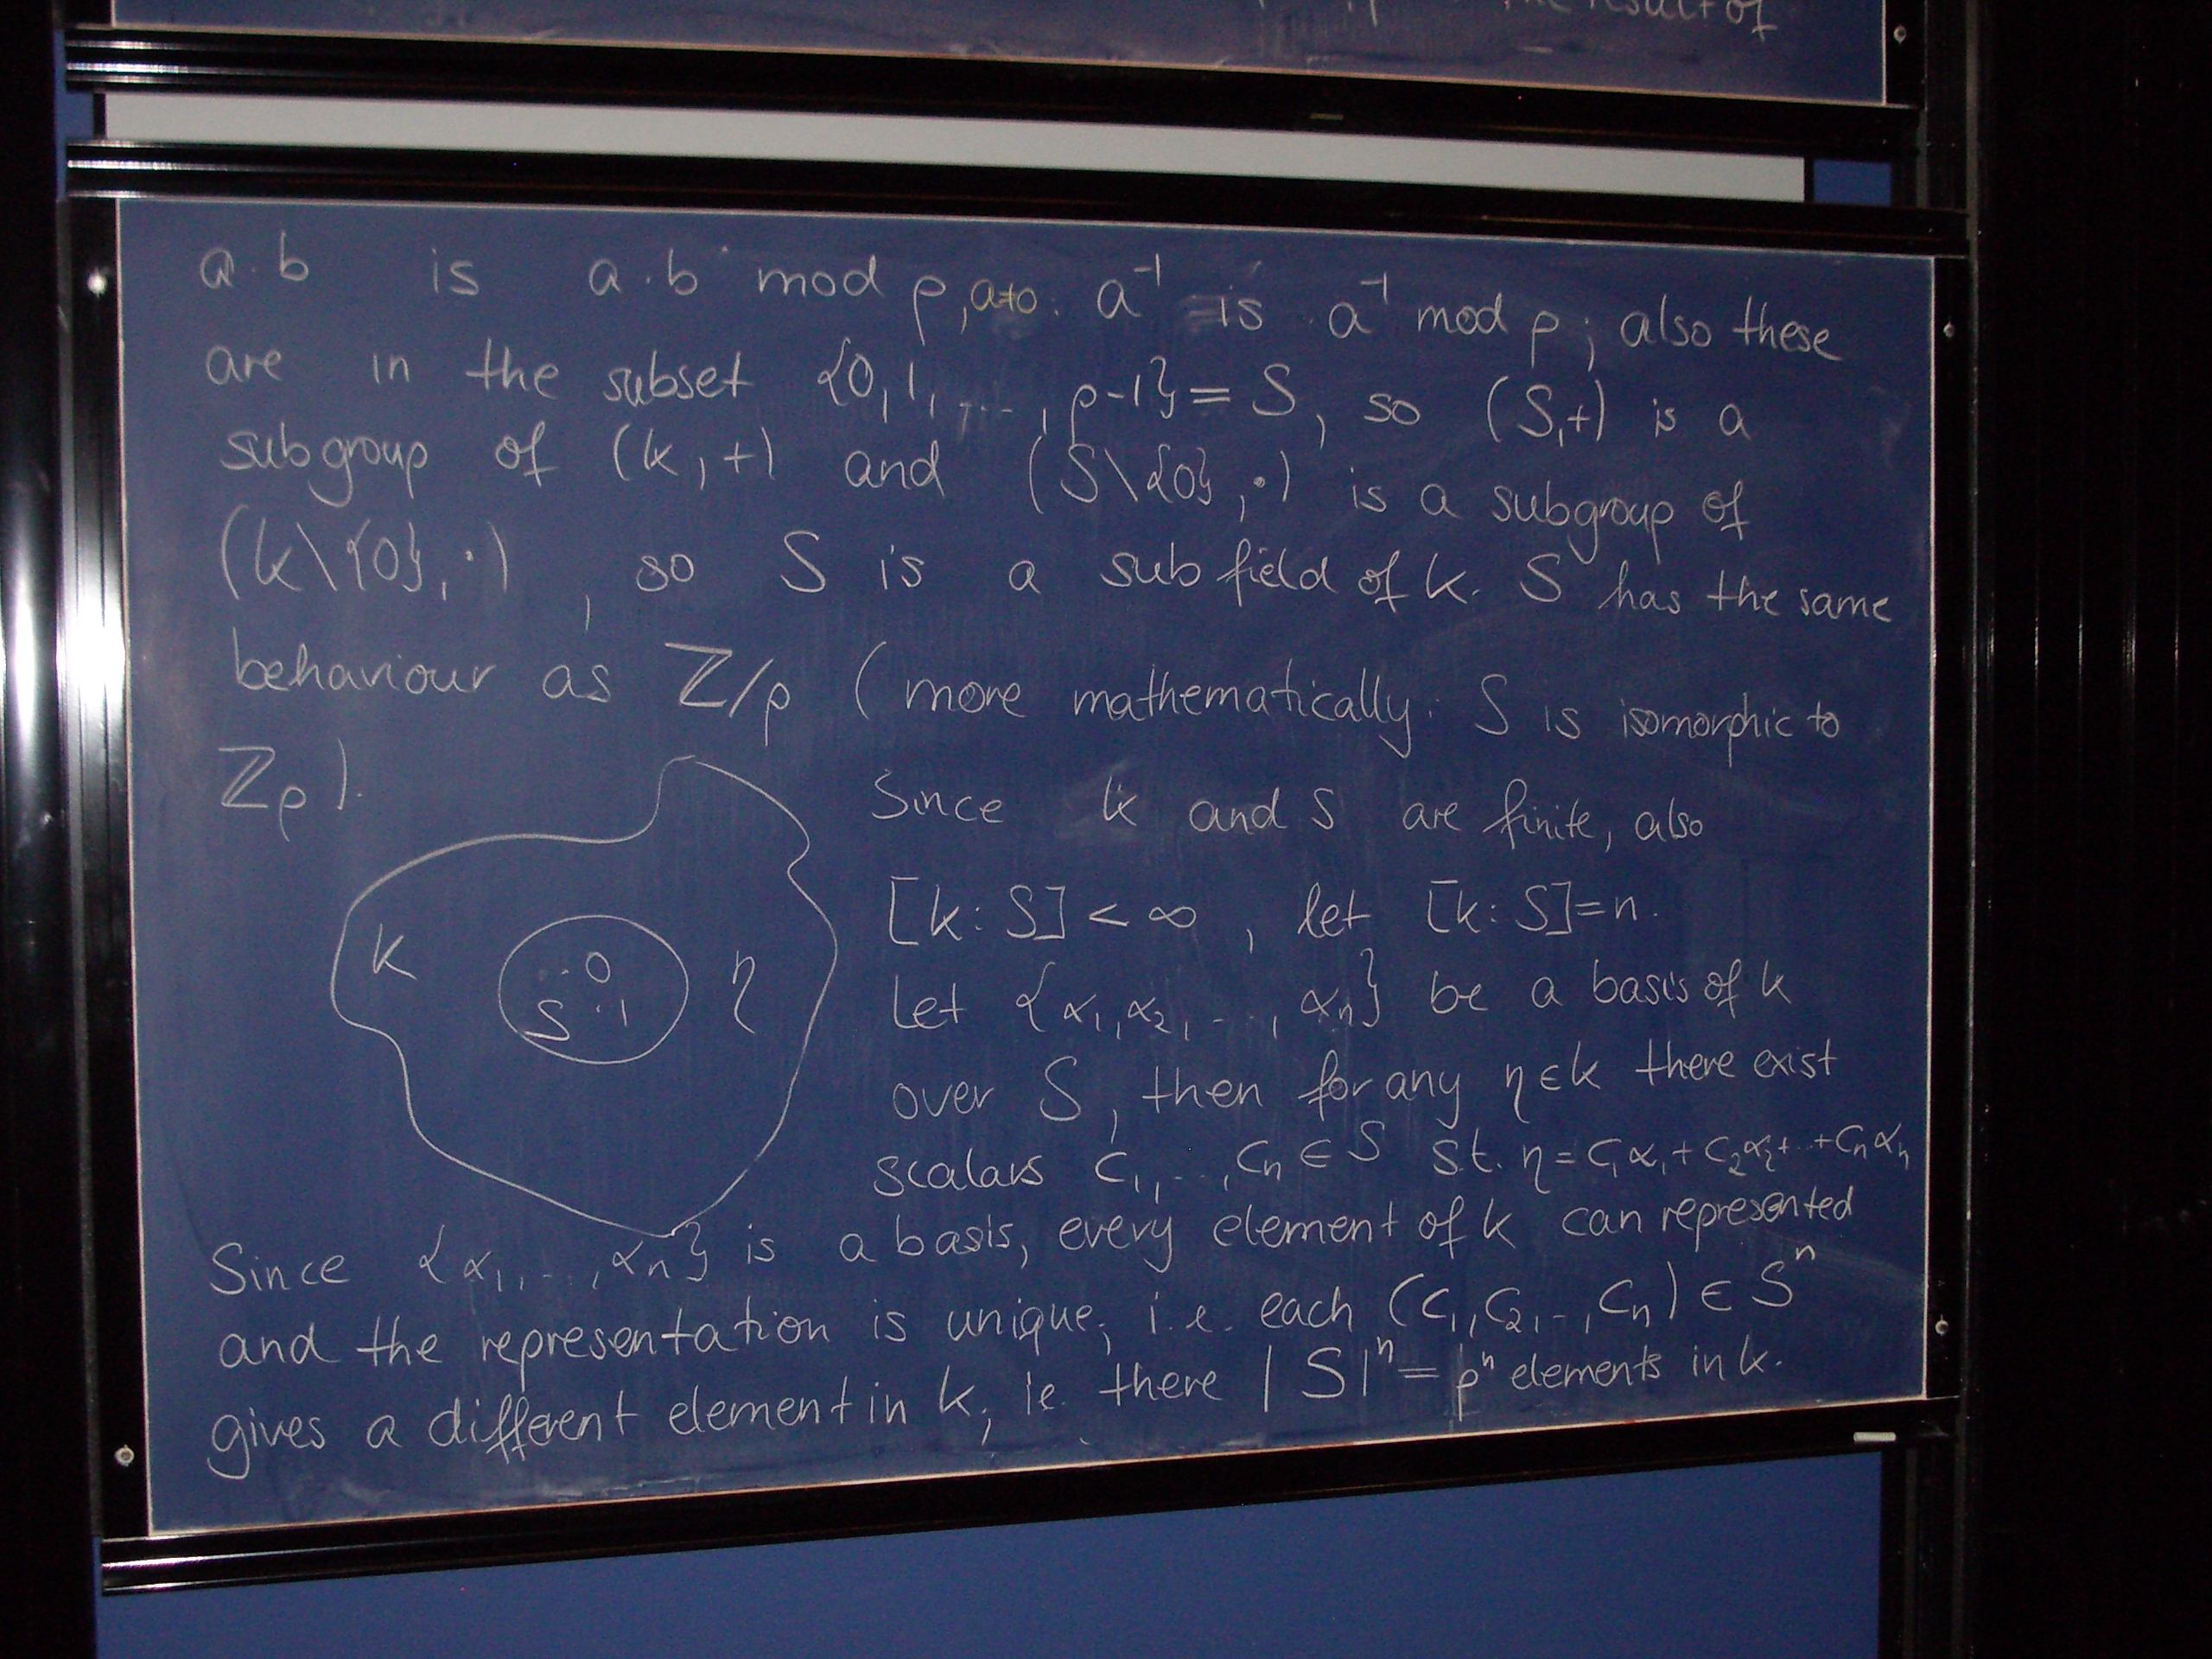 result of
a·b is a·b mod p, a≠0: a⁻¹ is a⁻¹ mod p; also these
are in the subset {0,1,...,p-1}=S, so (S,+) is a
subgroup of (k,+) and (S\{0},·) is a subgroup of
(k\{0},·), so S is a subfield of k. S has the same
behaviour as ℤ/p (more mathematically: S is isomorphic to
ℤp).
k
0
S 1
η
Since k and S are finite, also
[k:S]<∞, let [k:S]=n.
Let {α₁,α₂,...,αₙ} be a basis of k
over S, then for any η∈k there exist
scalars c₁,...,cₙ∈S s.t. η=c₁α₁+c₂α₂+...+cₙαₙ
Since {α₁,...,αₙ} is a basis, every element of k can represented
and the representation is unique, i.e. each (c₁,c₂,..,cₙ)∈Sⁿ
gives a different element in k, ie. there |S|ⁿ=pⁿ elements in k.